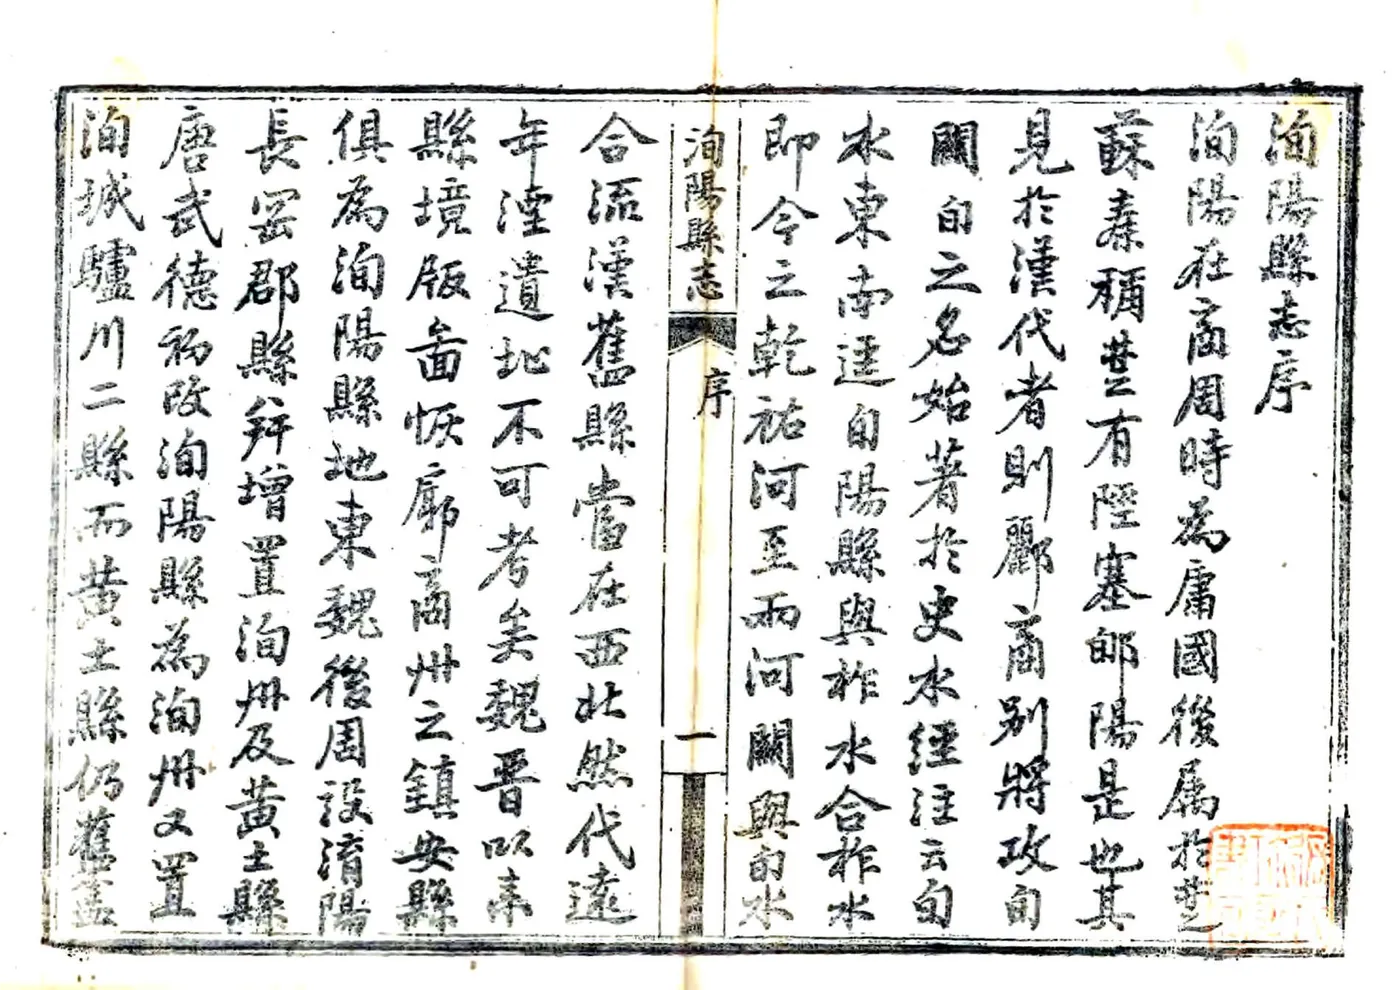 洵陽縣志序
洵陽在商周時為庸國後属於楚
蘇秦稱楚有陘塞郇陽是也其
見於漢代者則酈商别將攻旬
關旬之名始著於史水經注云旬
水東南逕旬陽縣與柞水合柞水
即今之乾祐河至兩河關與旬水
洵陽縣志
序
一
合流漢舊縣當在西北然代遠
年湮遺址不可考矣魏晋以來
縣境版啚恢廓商州之鎮安縣
俱為洵陽縣地東魏後周設淯陽
長罡郡縣并增置洵州及黃土縣
唐武德初改洵陽縣為洵州又置
洵城驢川二縣而黃土縣仍舊盖